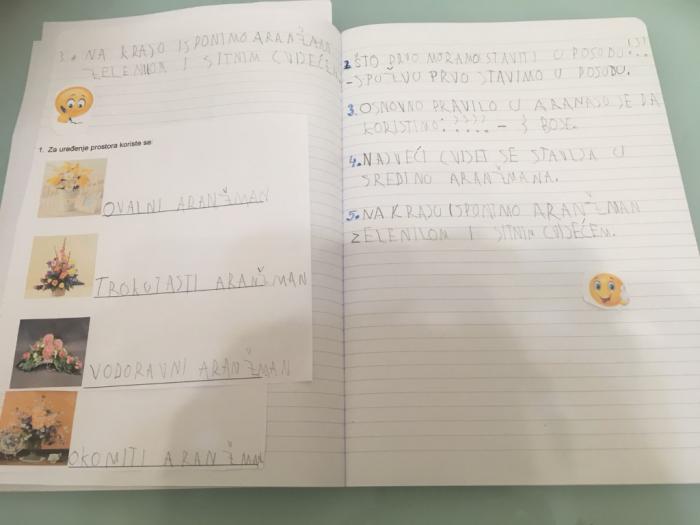 3. NA KRAJO ISPONIMO ARANŽMAN
ZELENILOM I SITNIM CVIJEĆEM
1. Za uređenje prostora koriste se:
OVALNI ARANŽMAN
TROKUTASTI ARANŽMAN
VODORAVNI ARANŽMAN
OKOMITI ARANŽMAN
2. ŠTO PRVO MORAMO STAVITI U POSODU
- SPUŽVU PRVO STAVIMO U POSODU.
3. OSNOVNO PRAVILO U ARANAŽO JE DA
KORISTIMO: ????? - 3 BOJE.
4. NAJVEĆI CVIJET SE STAVLJA U
SREDINO ARANŽMANA.
5. NA KRAJO ISPONIMO ARANŽMAN
ZELENILOM I SITNIM CVIJEĆEM.